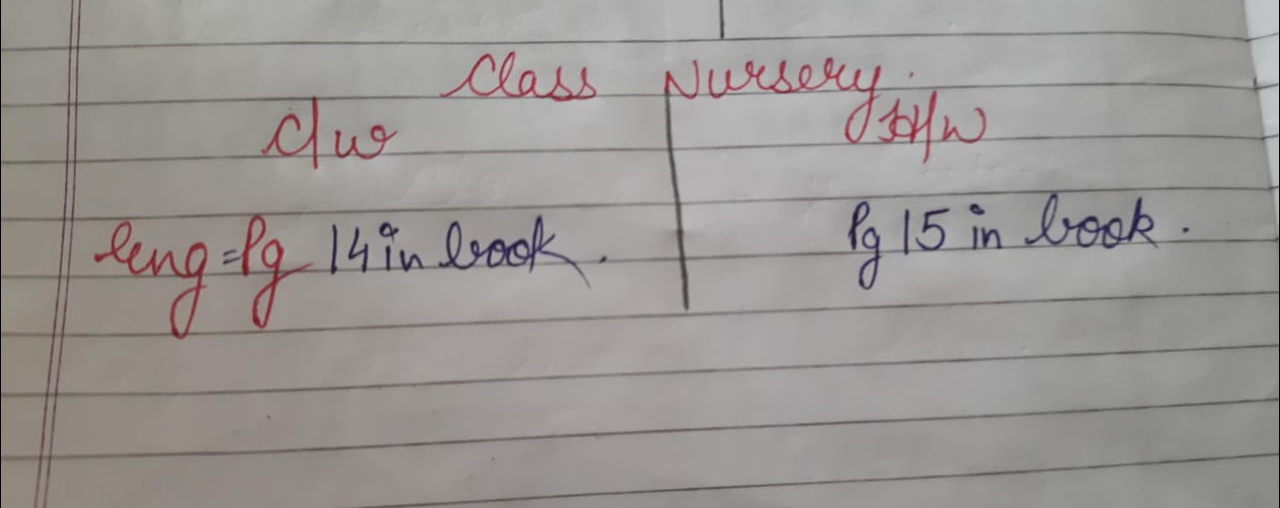 Class Nursery.
C/w H/w
Eng = Pg 14 in book. Pg 15 in book.